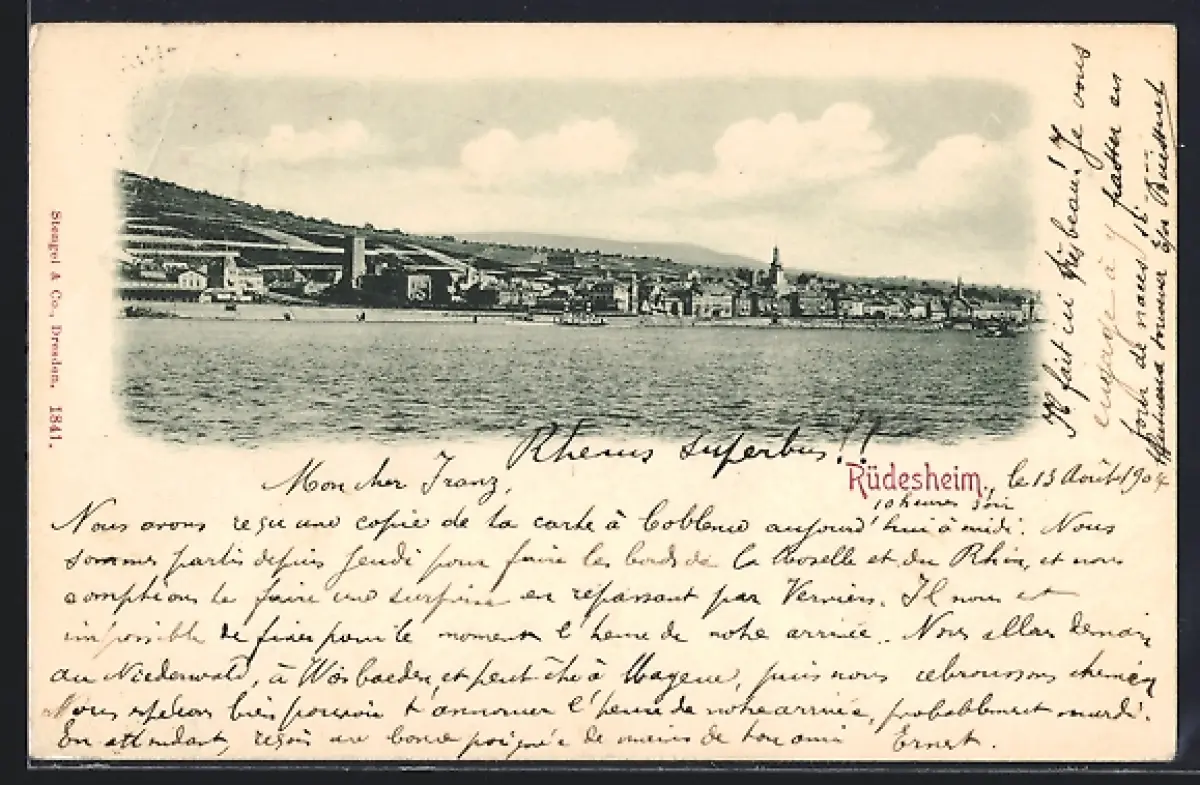 Stengel & Co., Dresden. 1841.
Rhenus superbus!!
Rüdesheim, le 13 Août 1904
10 heures soir
Mon cher Franz,
Nous avons reçu une copie de ta carte à Coblence aujourd'hui à midi. Nous
sommes partis depuis jeudi pour faire les bords de la Moselle et du Rhin, et nous
comptions te faire une surprise en repassant par Verviers. Il nous est
impossible de fixer pour le moment l'heure de notre arrivée. Nous allons demain
au Niederwald, à Wiesbaden, et peut-être à Mayence, puis nous rebroussons chemin
Nous espérons bien pouvoir t'annoncer l'heure de notre arrivée, probablement mardi.
En attendant, reçois une bonne poignée de mains de ton ami Ernest.
Il fait ici très beau! Je vous
engage à y passer en